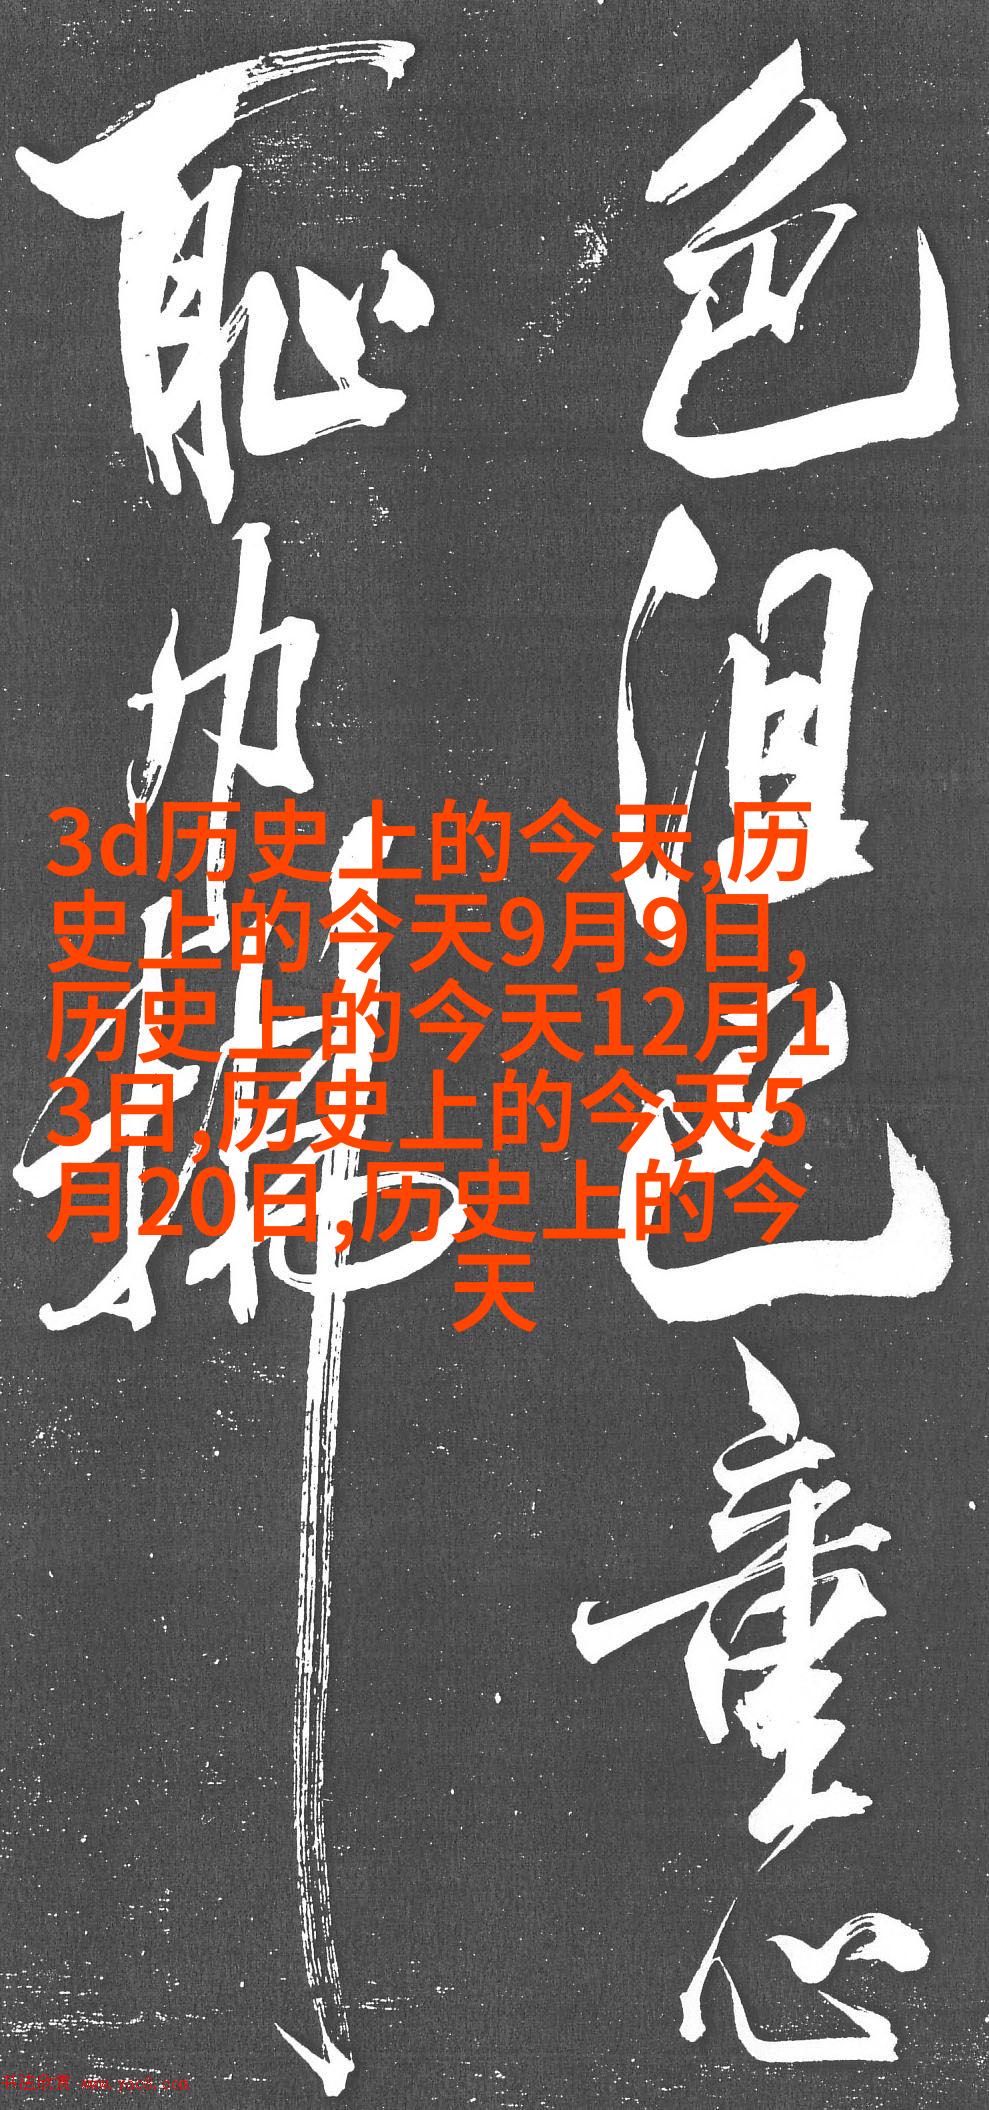 色沮已重心
恥巾拂
3d历史上的今天,历
史上的今天9月9日,
历史上的今天12月1
3日,历史上的今天5
月20日,历史上的今
天
书法欣赏 www.yac8.com